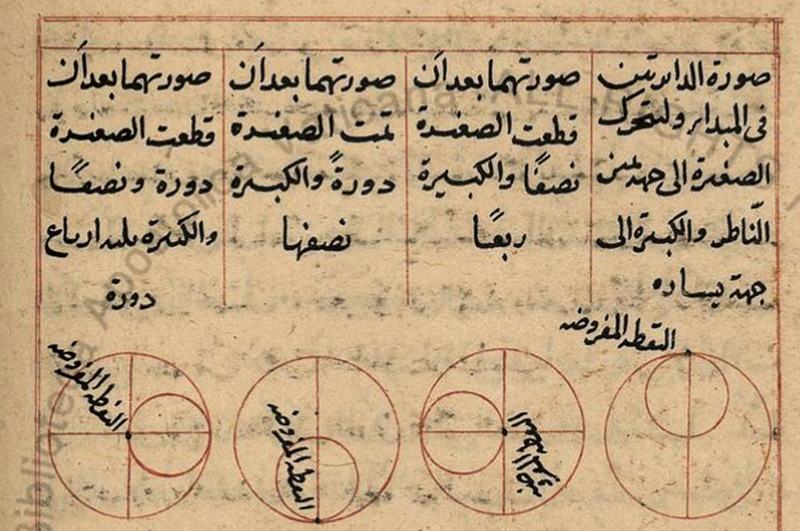 صورة الدائرتين
فى المبدا ولتتحرك
الصغيرة الى جهة يمين
الناظر والكبيرة الى
جهة يساره
صورتهما بعد ان
قطعت الصغيرة
نصفًا والكبيرة
ربعًا
صورتهما بعد ان
تمت الصغيرة
دورةً والكبيرة
نصفها
صورتهما بعد ان
قطعت الصغيرة
دورة ونصفًا
والكبيرة ثلثة ارباع
دورة
النقطه المفروضه
النقطه المفروضه
النقطه المفروضه
النقطه المفروضه